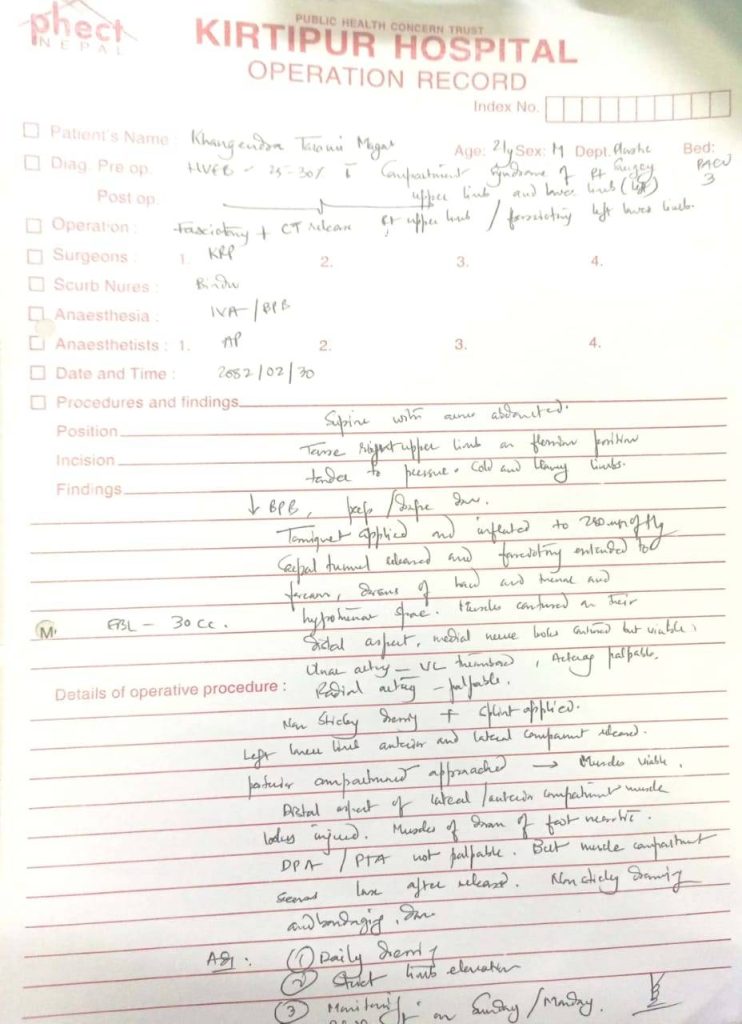 phect
NEPAL
PUBLIC HEALTH CONCERN TRUST
KIRTIPUR HOSPITAL
OPERATION RECORD
Index No.
Patient's Name : Khangendra Magar Age: 21y Sex: M Dept. Bed: PACU 3
Diag. Pre op. HVEB - 25-30% Compartment Syndrome of Rt
upper limb and lower limb (left)
Post op.
Operation : Fasciotomy + CT release Rt upper limb / fasciotomy left lower limb.
Surgeons : 1. KRP 2. 3. 4.
Scurb Nures : Bindu
Anaesthesia : IVA/BPB
Anaesthetists : 1. AP 2. 3. 4.
Date and Time : 2082/02/30
Procedures and findings
Position Supine with arms abducted.
Incision Tense right upper limb in flexion position
tender to pressure. Cold and limbs.
Findings
↓ BPB, prep/drape done.
Tourniquet applied and inflated to 250 mm of Hg
Carpal tunnel released and fasciotomy extended to
forearm, dorsum of hand and thenar and
hypothenar space. Muscles contused on their
M. EBL - 30 cc.
distal aspect, medial nerve looks contused but viable,
Ulnar artery - thrombosed, palpable.
Details of operative procedure : Radial artery - palpable.
Non sticky dressing + splint applied.
Left lower limb anterior and lateral compartment released.
posterior compartment approached → Muscles viable.
Distal aspect of lateral/anterior compartment muscle
looks injured. Muscles of dorsum of foot necrotic.
DPA / PTA not palpable. But muscle compartment
seems lax after released. Non sticky dressing
and bandaging done
Adv : ① Daily dressing
② Strict limb elevation
③ on Sunday/Monday.